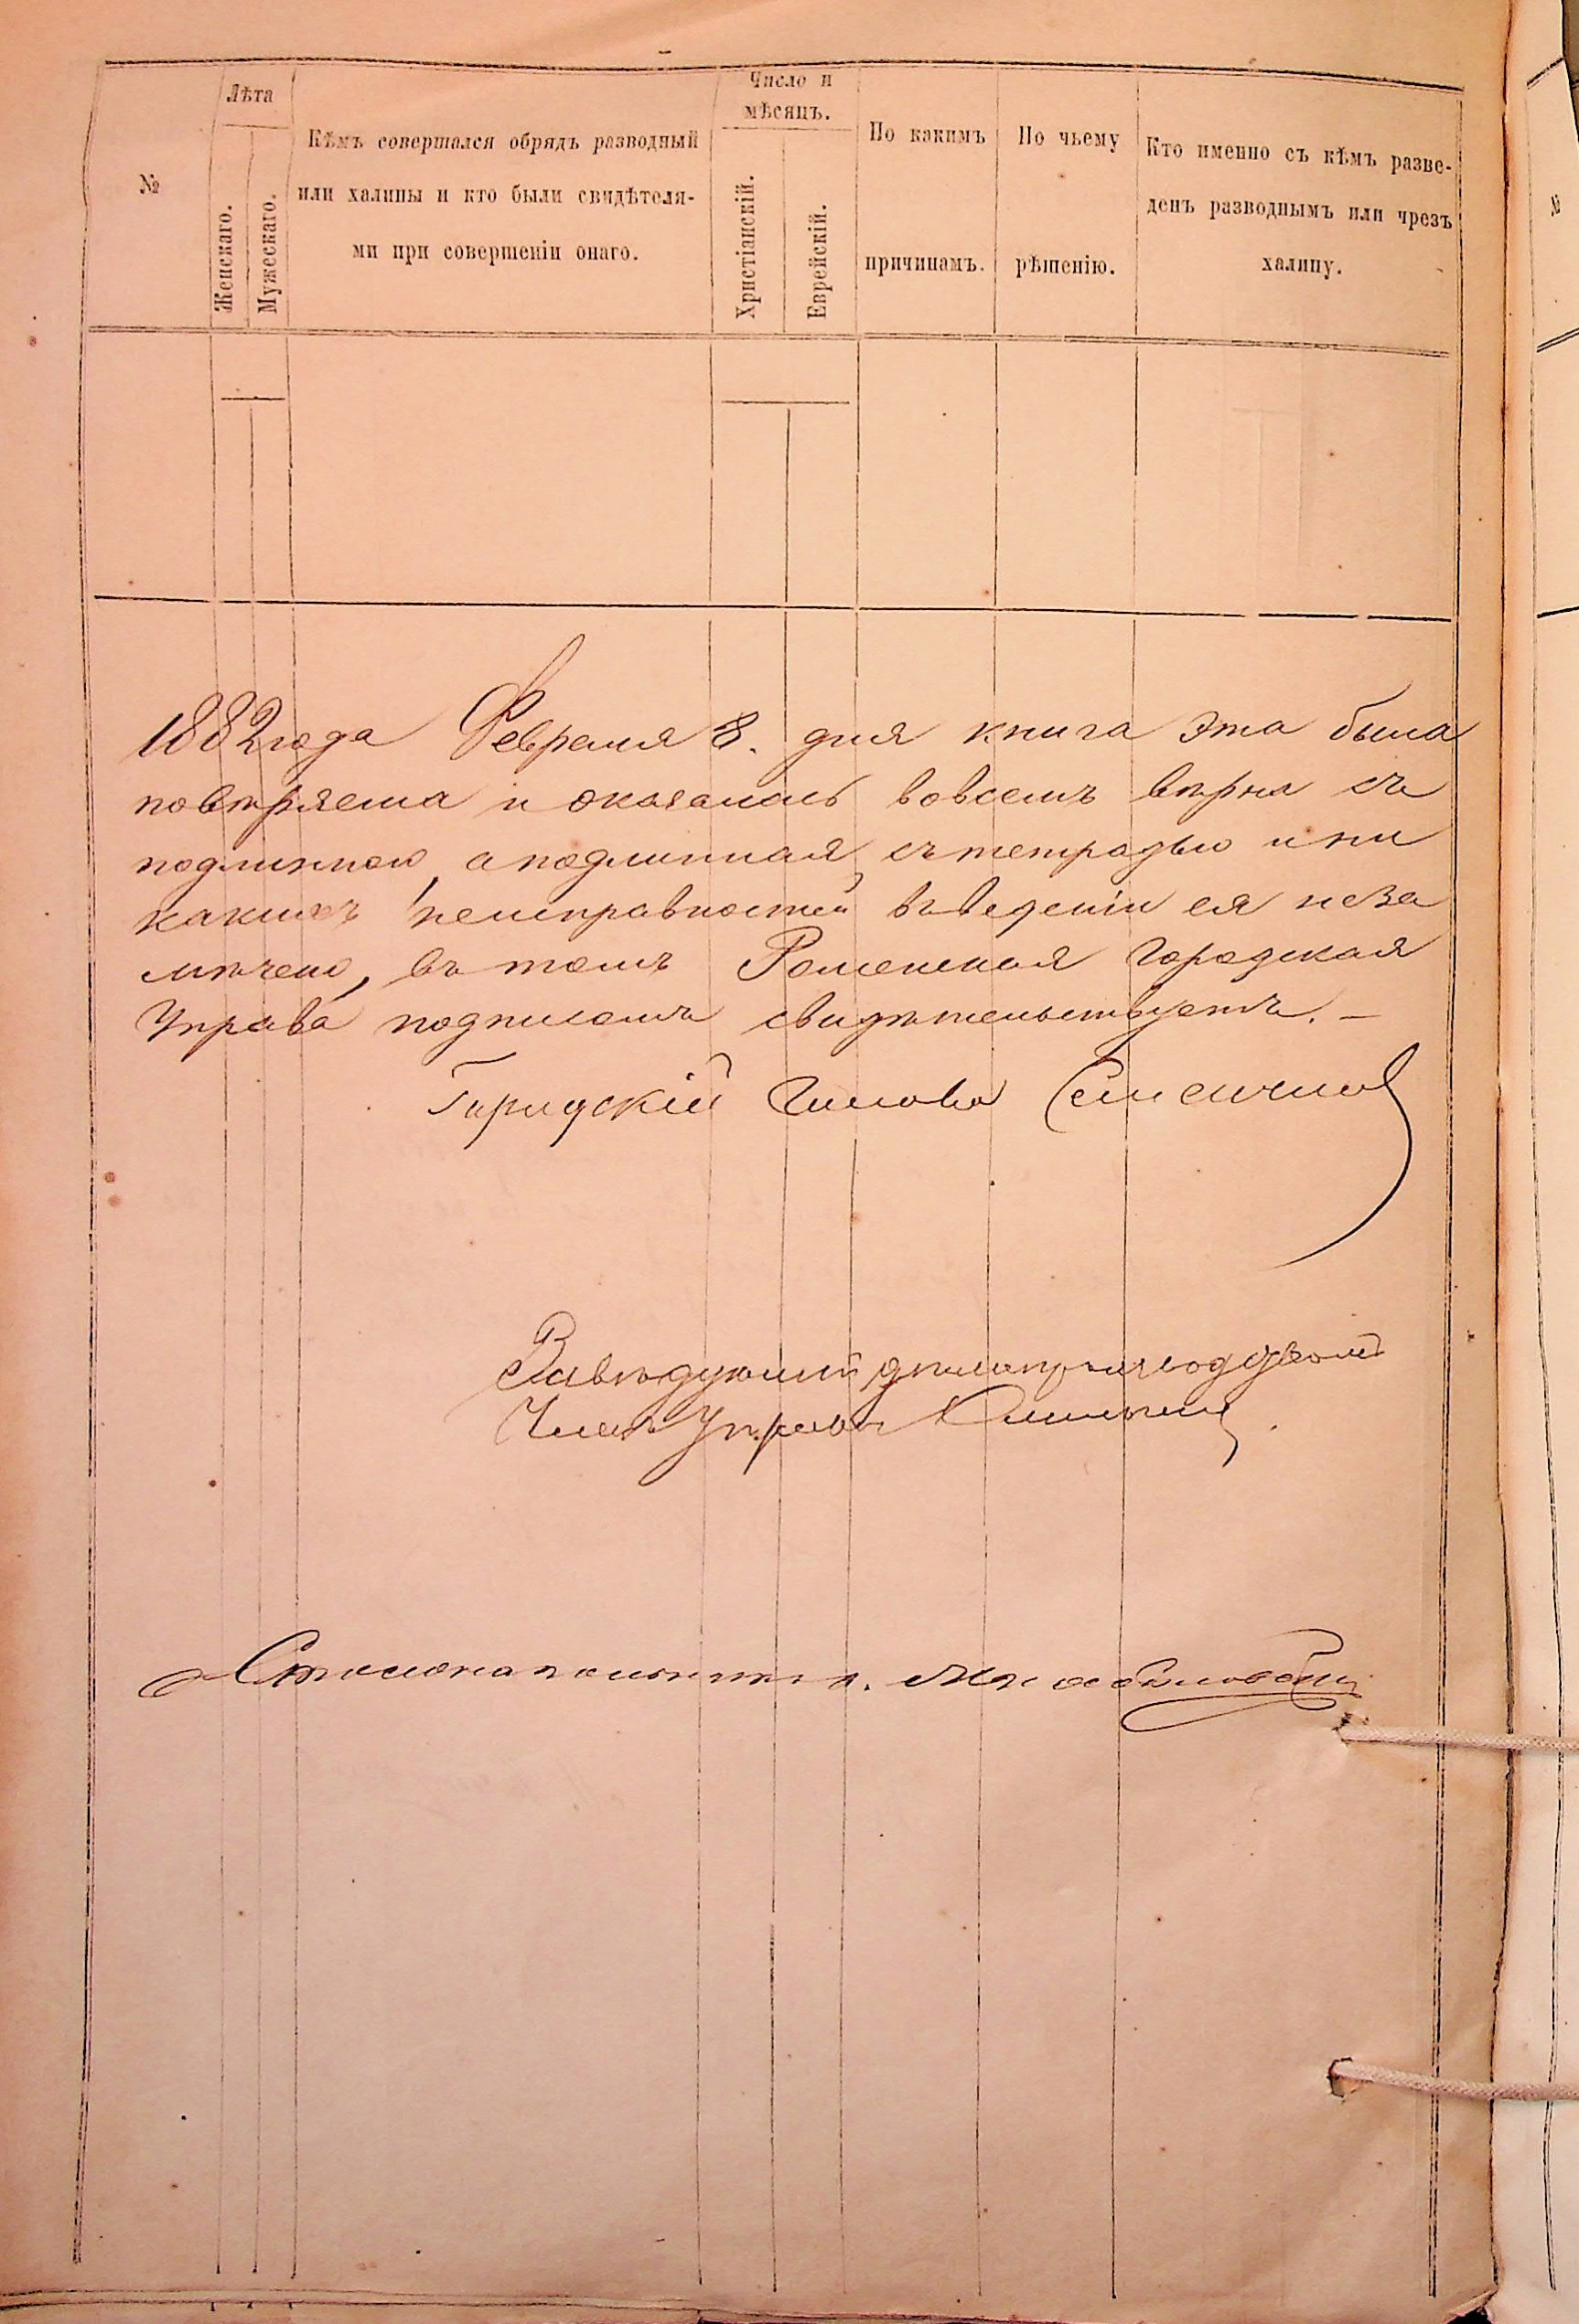 №
Лѣта
Женскаго.
Мужескаго.
Кѣмъ совершался обрядъ разводный
или халицы и кто были свидѣтеля-
ми при совершеніи онаго.
Число и
мѣсяцъ.
Христіанскій.
Еврейскій.
По какимъ
причинамъ.
По чьему
рѣшенію.
Кто именно съ кѣмъ разве-
денъ разводнымъ или чрезъ
халицу.
№
1882 года Февраля 8. дня книга эта была
повѣряема и оказалась вовсемъ вѣрна съ
подлинною, а подлинная съ тетрадью и ни
какихъ неисправностей въ веденіи ея неза
мѣчено, въ томъ Роменская Городская
Управа подписомъ свидѣтельствуетъ. –
Городскій Голова
Завѣдующій
Членъ Управы